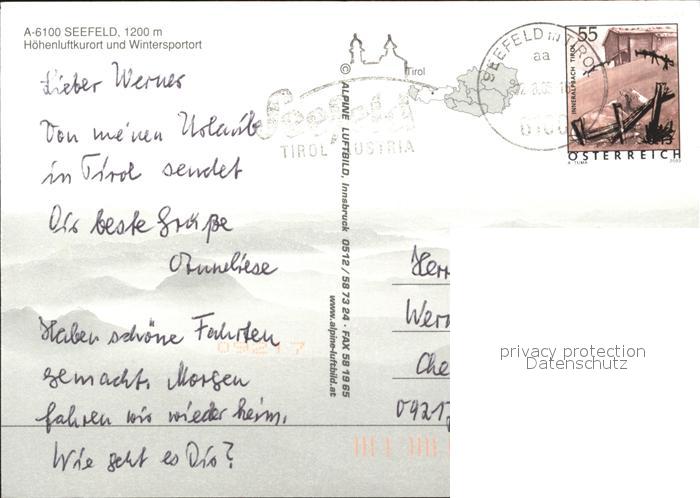 A-6100 SEEFELD, 1200 m
Höhenluftkurort und Wintersportort
Lieber Werner
Von meinen Urlaub
in Tirol sendet
Dir beste Grüße
Anneliese
Haben schöne Fahrten
gemacht. Morgen
fahren wir wieder heim.
Wie geht es Dir?
© ALPINE LUFTBILD, Innsbruck 0512 / 58 73 24 · FAX 58 19 65
www.alpine-luftbild.at
Tirol
Seefeld
TIROL AUSTRIA
SEEFELD in TIROL
aa
6100
55
INNERALPBACH TIROL
ÖSTERREICH
A. TUMA
2003
Herr
Wern
Che
0921
09217
privacy protection
Datenschutz